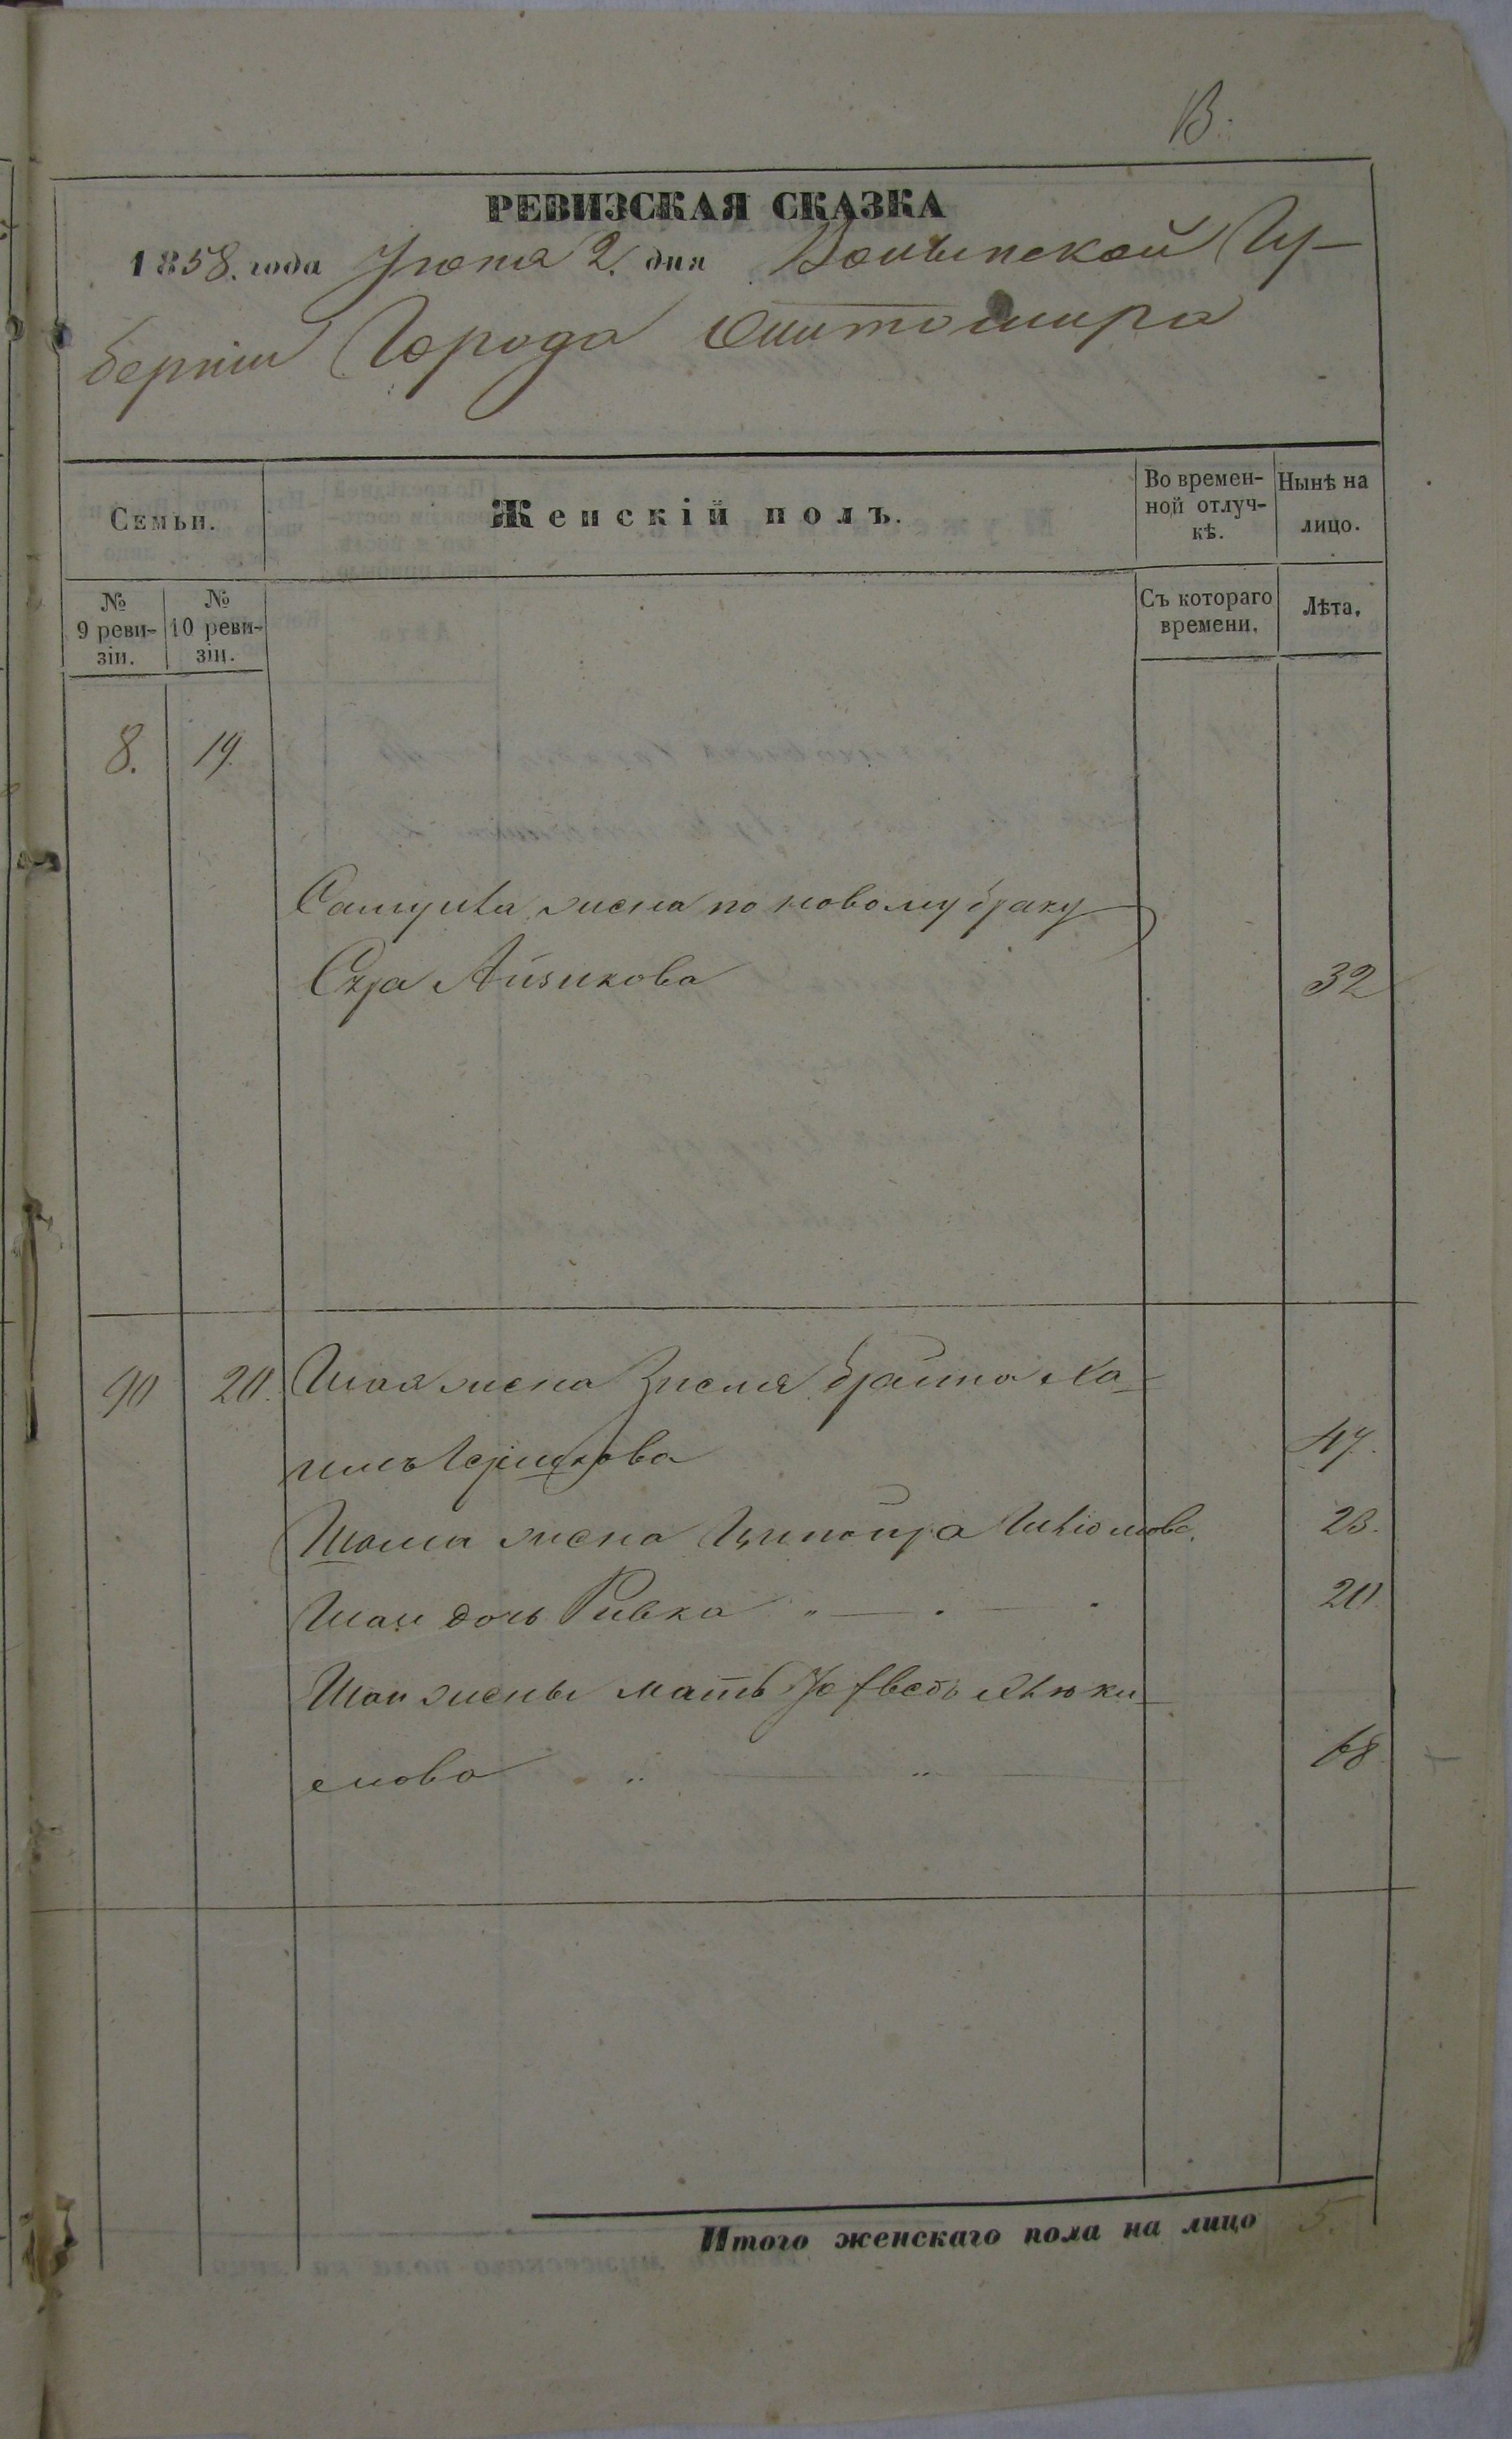 В.
РЕВИЗСКАЯ СКАЗКА
1858. года Іюня 2. дня Волынской Гу-
берніи Города Житомира
Семьи.
Женскій полъ.
Во времен-
ной отлуч-
кѣ.
Нынѣ на
лицо.
№
9 реви-
зіи.
№
10 реви-
зіи.
Съ котораго
времени.
Лѣта.
8. 19.
Самуила жена по новому браку
Сура Айзикова 32
90 20. Шая жена Зисля Брайна Ха-
имъ Гершкова 47.
жена Ципойра 23.
Шаи дочь Ривка 20
Шаи жены мать
68
Итого женскаго пола на лицо 5.